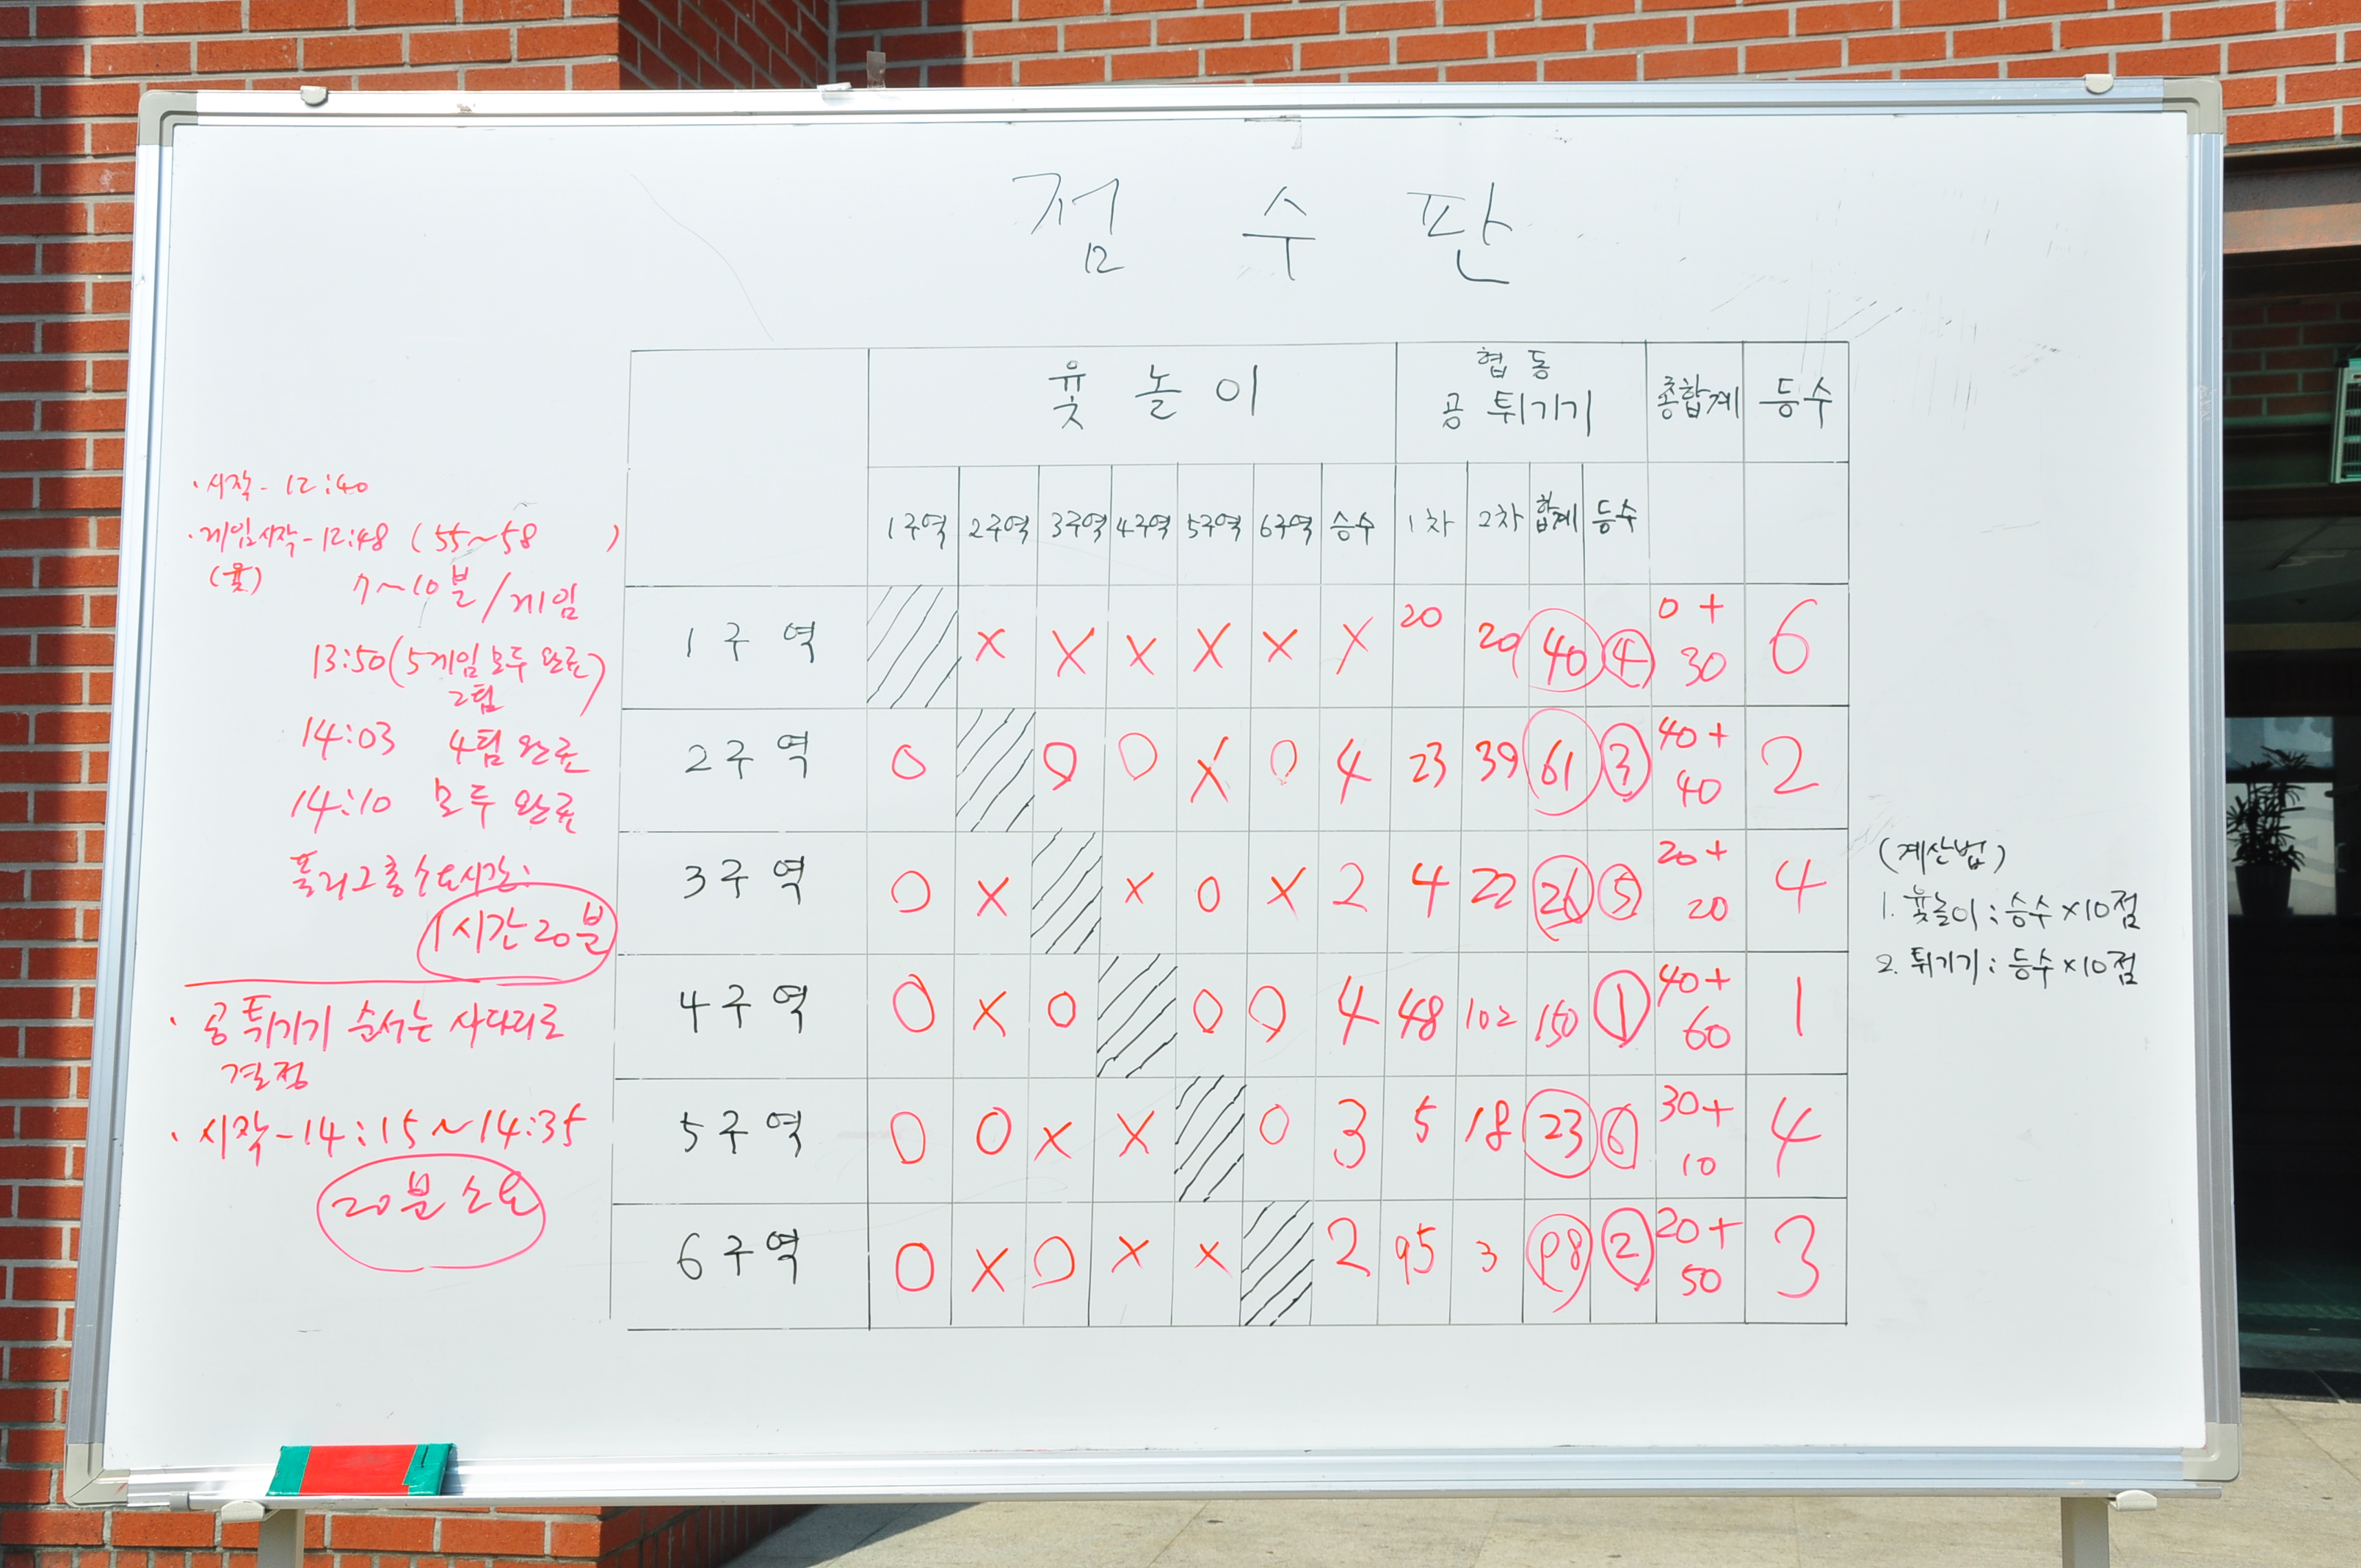 점 수 판
윷 놀 이 협 동 공 튀기기 종합계 등수
1구역 2구역 3구역 4구역 5구역 6구역 승수 1차 2차 합계 등수
1 구 역 X X X X X X 20 20 40 4 0 + 30 6
2 구 역 O O O X O 4 23 39 61 3 40 + 40 2
3 구 역 O X X O X 2 4 22 26 5 20 + 20 4
4 구 역 O X O O O 4 48 102 150 1 40 + 60 1
5 구 역 O O X X O 3 5 18 23 6 30 + 10 4
6 구 역 O X O X X 2 95 3 98 2 20 + 50 3
· 시작 - 12:40
· 게임시작 - 12:48 (55~58 )
(윷) 7~10분/게임
13:50 (5게임 모두 완료)
2팀
14:03 4팀 완료
14:10 모두 완료
풀리그 총 소요시간:
1시간 20분
· 공 튀기기 순서는 사다리로
결정
· 시작 - 14:15~14:35
20분 소요
(계산법)
1. 윷놀이 : 승수 ×10점
2. 튀기기 : 등수 ×10점